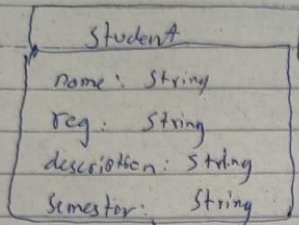 Student
name: String
reg: String
description: String
Semester: String